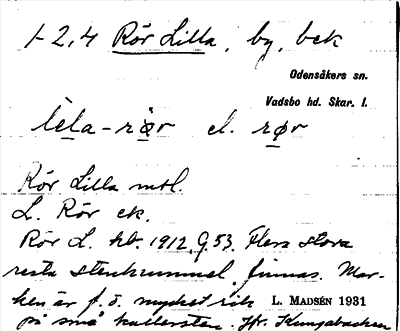 1-2,4 Rör Lilla, by, bek
Odensåkers sn.
Vadsbo hd. Skar. l.
lèla-rør el. rør
Rör Lilla mtl.
L. Rör ek.
Rör L. kb. 1912, G.53. Flera stora
resta stenkummel finnas. Mar-
ken är f. ö. mycket rik L. MADSÉN 1931
på små kullersten. Jfr. Kungabacken